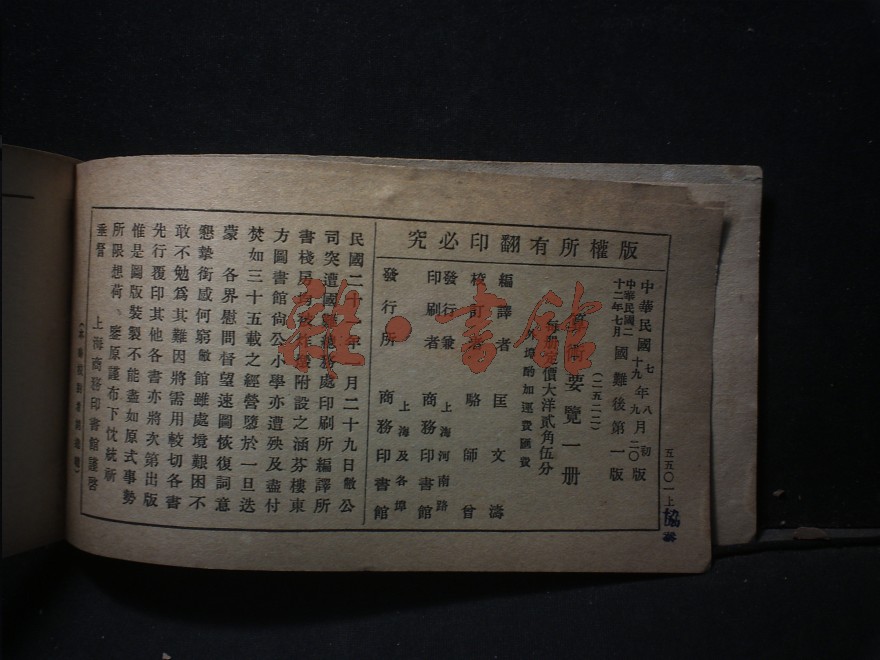 五五〇一上
協
版權所有翻印必究
中華民國七年八月初版
十九年九月二〇版
中華民國二十二年七月國難後第一版
(二五二二)
要覽一册
每册定價大洋貳角伍分
外埠酌加運費匯費
編譯者 匡文濤
校訂者 駱師曾
發行兼印刷者 上海河南路 商務印書館
發行所 上海及各埠 商務印書館
民國二十 年 月二十九日敝公
司突遭國難總務處印刷所編譯所
書棧房 附設之涵芬樓東
方圖書館尙公小學亦遭殃及盡付
焚如三十五載之經營隳於一旦迭
蒙 各界慰問督望速圖恢復詞意
懇摯銜感何窮敝館雖處境艱困不
敢不勉爲其難因將需用較切各書
先行覆印其他各書亦將次第出版
惟是圖版裝製不能盡如原式事勢
所限想荷 鑒原謹布下忱統祈
垂詧 上海商務印書館謹啓
雜·書館